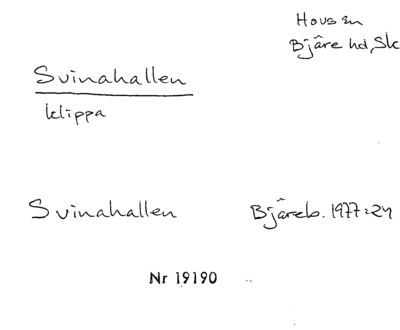 Hovs sn
Bjäre hd, Sk
Svinahallen
klippa
Svinahallen Bjäreb. 1977:24
Nr 19190